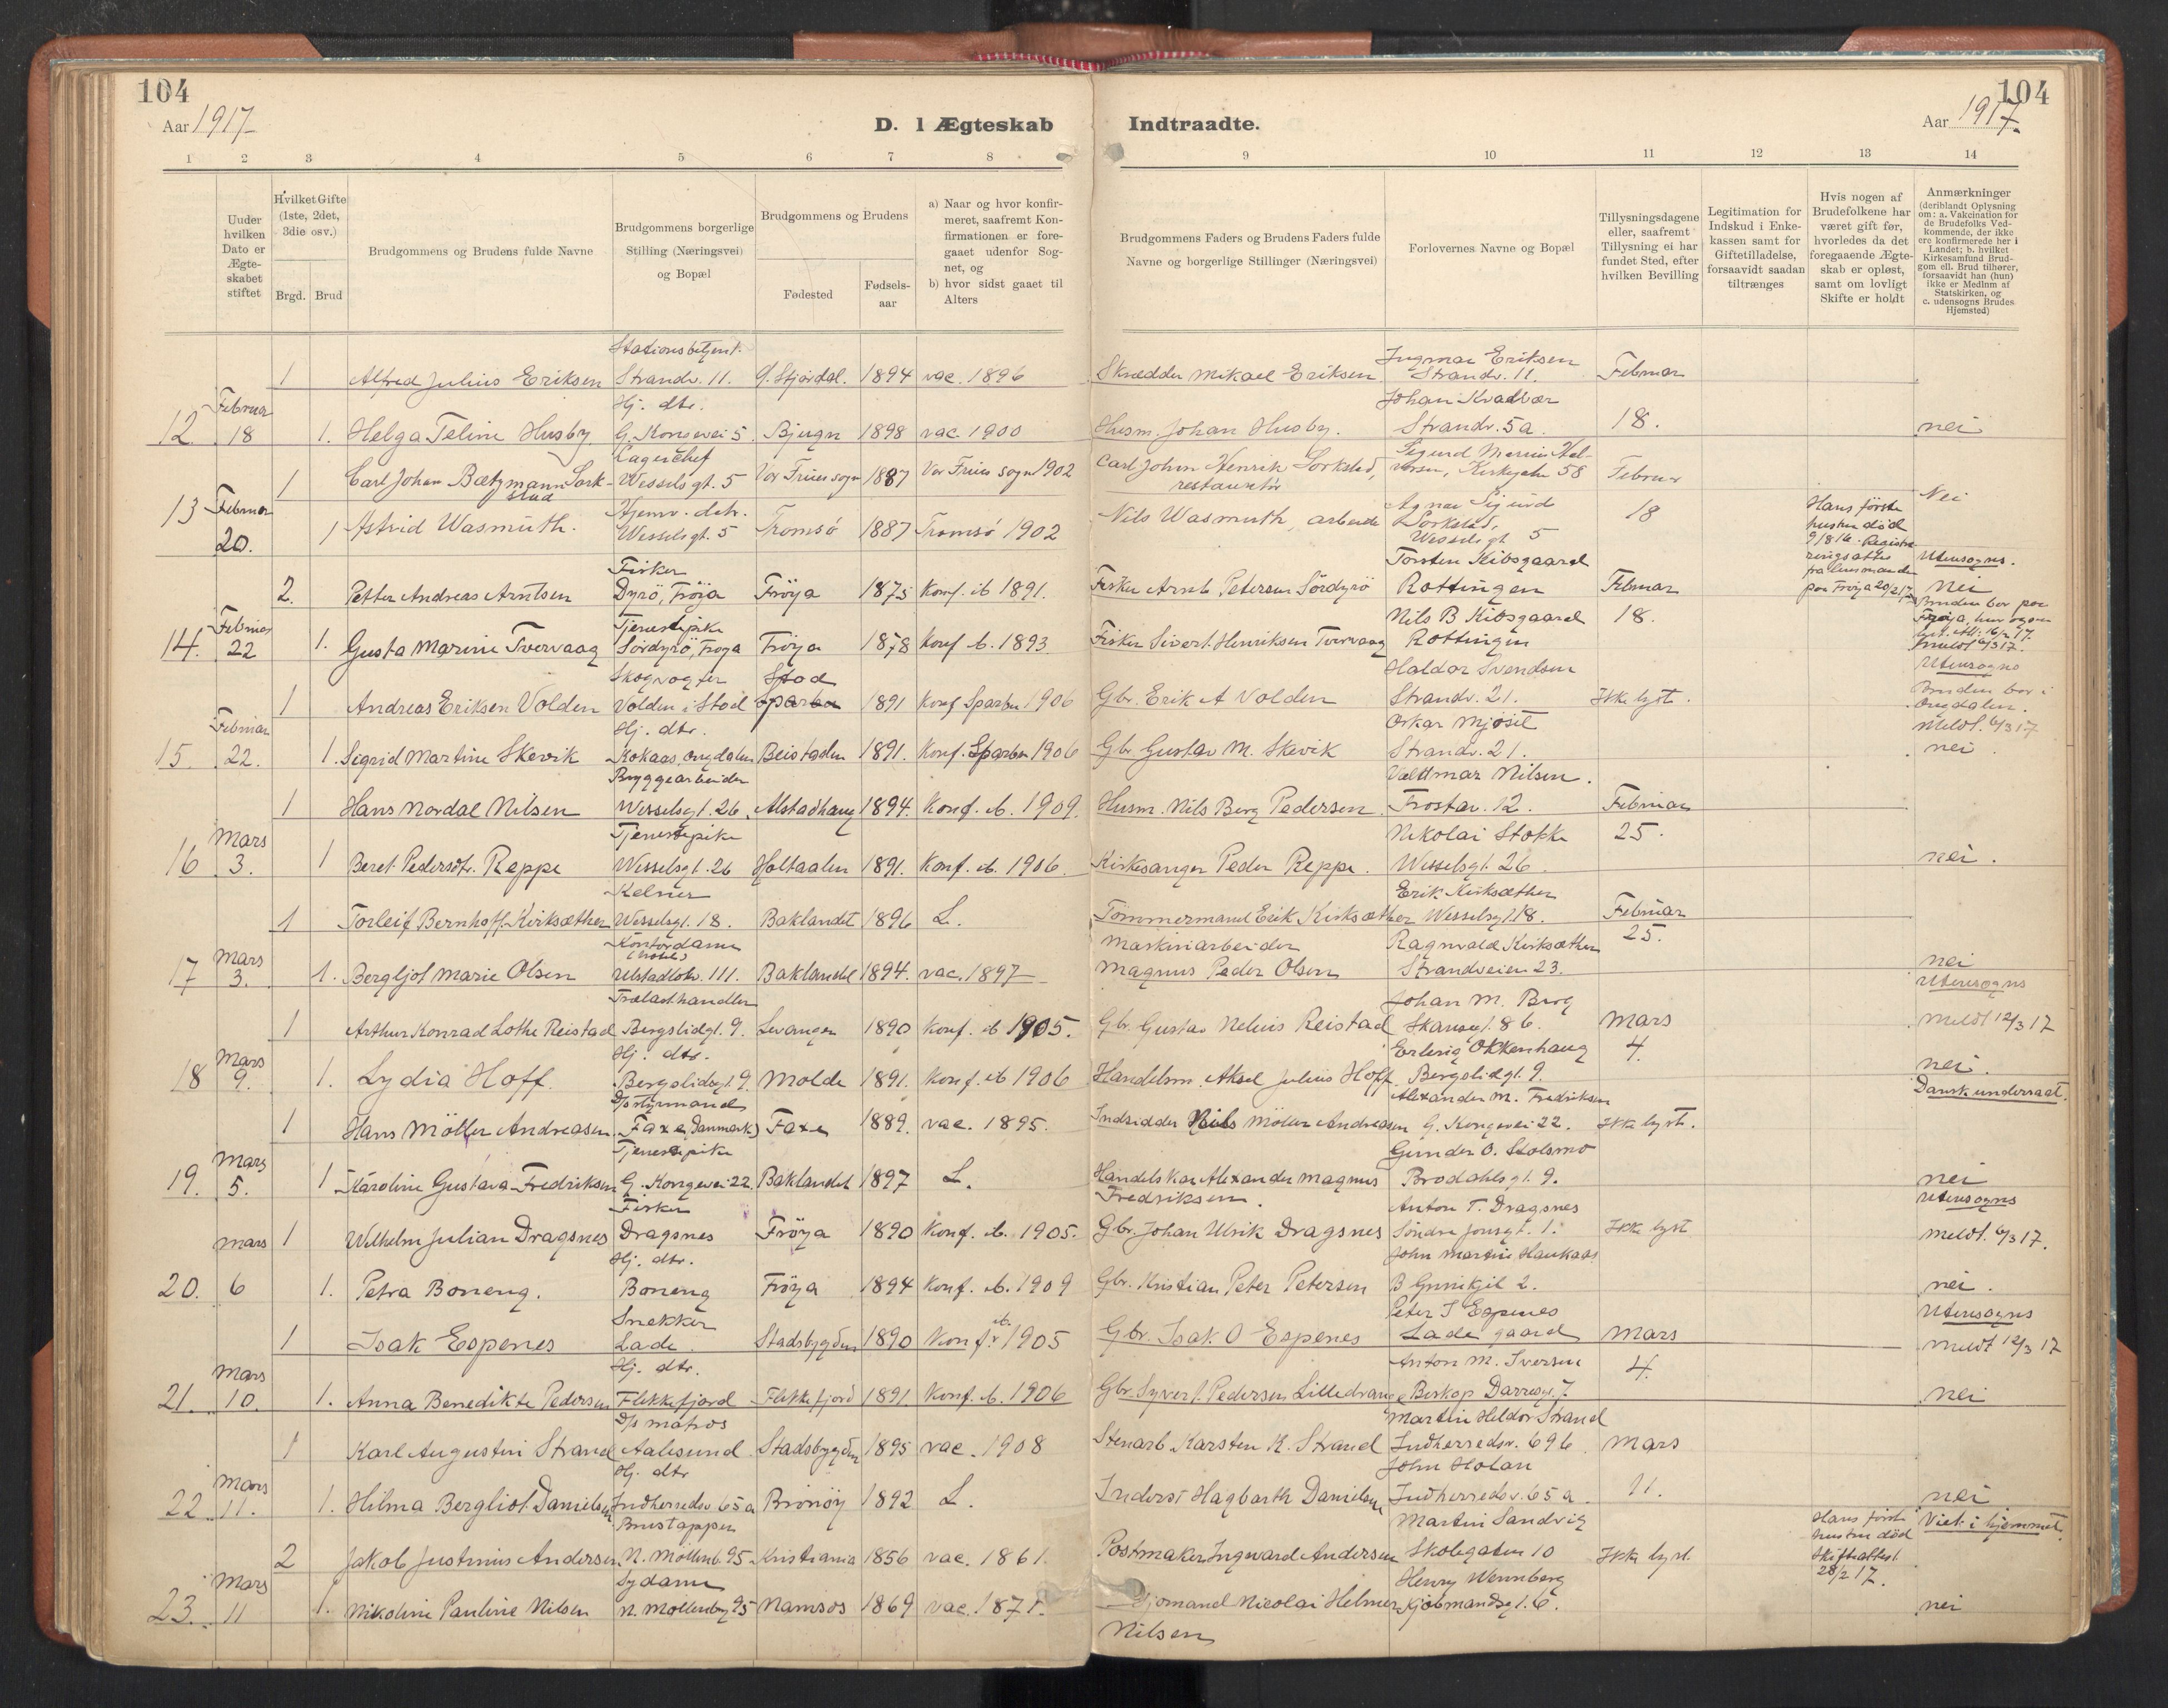 104
Aar 1917
D. 1 Ægteskab
Indtraadte.
104
Aar 1917.
1 2 3 4 5 6 7 8
9 10 11 12 13 14
Uuder hvilken Dato er Ægte-skabet stiftet
Hvilket Gifte (1ste, 2det, 3die osv.)
Brgd. Brud
Brudgommens og Brudens fulde Navne
Brudgommens borgerlige Stilling (Næringsvei) og Bopæl
Brudgommens og Brudens
Fødested
Fødsels-aar
a) Naar og hvor konfir-meret, saafremt Kon-firmationen er fore-gaaet udenfor Sog-net, og
b) hvor sidst gaaet til Alters
Brudgommens Faders og Brudens Faders fulde Navne og borgerlige Stillinger (Næringsvei)
Forlovernes Navne og Bopæl
Tillysningsdagene eller, saafremt Tillysning ei har fundet Sted, efter hvilken Bevilling
Legitimation for Indskud i Enke-kassen samt for Giftetilladelse, forsaavidt saadan tiltrænges
Hvis nogen af Brudefolkene har været gift før, hvorledes da det foregaaende Ægte-skab er opløst, samt om lovligt Skifte er holdt
Anmærkninger (deriblandt Oplysning om: a. Vakcination for de Brudefolks Ved-kommende, der ikke ere konfirmerede her i Landet; b. hvilket Kirkesamfund Brud-gom ell. Brud tilhører, forsaavidt han (hun) ikke er Medlm af Statskirken, og c. udensogns Brudes Hjemsted)
Stationsbetjent.
1 Alfred Julius Eriksen Strandv. 11. 1894 vac. 1896 Skrædder Mikael Eriksen
Ingmar Eriksen Strandv. 11. Februar
12 Februar 18 1. Helga Teline Husby. Hj. dtr. G. Kongevei 5. Bjugn 1898 vac. 1900 Husm. Johan Husby. Johan Kvadvær Strandv. 5a. 18. nei
1 Carl Johan Bætzmann Lorkstad Lagerchef Wesselsgt. 5 Vor Frues sogn 1887 Vor Frues sogn 1902 Carl Johan Henrik Lorkstad, restauratør Kirkegaten 58 Februar
13 Februar 20. 1 Astrid Wasmuth. Hjemv. datr. Wesselsgt. 5 Tromsö 1887 Tromsö 1902 Nils Wasmuth, arbeider Lorkstad, Wesselsgt 5 18 Nei
2. Petter Andreas Arntsen Fisker Dyrö, Fröya Fröya 1875 Konf. ib 1891. Fisker Arnt Petersen Sördyrö Torsten Kibsgaard Rottingen Februar
Hans förste hustru död 9/8 16. Registreringsattest fra lensmanden paa Fröya 20/2 17. Utensogns. nei
14. Februar 22 1. Gusta Marine Tvervaag Tjenestepike Sördyrö, Fröya Fröya 1878 Konf ib. 1893. Fisker Sivert Henriksen Tvervaag Nils B Kibsgaard Rottingen 18.
Bruden bor paa Fröya, meldt 6/3 17.
1 Andreas Eriksen Volden Skogvogter Volden i Stod Stod 1891 Konf Sparbu 1906 Gbr. Erik A Volden Haldor Svendsen Strandv. 21. Ikke lyst. Utensogns
15. Februar 22. 1. Sigrid Martine Skevik Hj. dtr. Kokaas, Ongdalen Beistaden 1891. Konf. Sparbu 1906 Gbr. Gustav M. Skevik Oskar Mjosit Strandv. 21. Bruden bor i Ongdalen. Meldt. 6/3 17 nei.
1 Hans Nordal Nilsen Bryggearbeider Wesselsgt. 26. Alstadhaug 1894. Konf. ib. 1909. Husm. Nils Berg Pedersen. Valdmar Nilsen. Frostav. 12. Februar
16 Mars 3. 1 Beret Pedersdtr. Reppe Tjenestepike Wesselsgt. 26 Holtaalen 1891. Konf. ib. 1906. Kirkesanger Peder Reppe. Nikolai Stokke Wesselsgt. 26 25. nei.
1 Torleif Bernhoff Kirksæther Kelner Wesselsgt. 18. Baklandet 1896 L. Tömmermand Erik Kirksæther Erik Kirksæther Wesselsgt. 18. Februar
17 Mars 3. 1. Bergljot Marie Olsen Kontordame Baklandet 1894. vac. 1897 Maskinarbeider Magnus Peder Olsen Ragnvald Kirksæther Strandveien 23. 25. nei
1 Arthur Konrad Lothe Reistad Trælasthandler Bergslidgt. 9. Levanger 1890 Konf. ib 1905. Gbr. Gustav Nelius Reistad Johan M. Berg Skansegt. 8 b. Mars Utensogns Meldt 12/3 17
18 Mars 9. 1. Lydia Hoff. Hj. dtr. Bergslidgt. 9. Molde 1891. Konf. ib 1906 Handelsm. Aksel Julius Hoff. Erling Okkenhaug Bergslidgt. 9. 4. nei.
1 Hans Möller Andreasen D/s styrmand Faxe, Danmark) Faxe 1889. vac. 1895. Indsidder Niels Möller Andreasen Alexander M. Fredriksen G. Kongevei 22. Ikke lyst. Dansk undersaat.
19. Mars 5. 1 Karoline Gustava Fredriksen Tjenestepike G. Kongevei 22. Baklandet 1897 L. Handelskar Alexander Magnus Fredriksen. Gunder O. Stolsmo Brodahlsgt. 9. nei
1 Wilhelm Julian Dragsnes Fisker Dragsnes Fröya 1890 Konf. ib. 1905. Gbr. Johan Ulrik Dragsnes Anton T. Dragsnes Ikke lyst Utensogns Meldt. 6/3 17.
20. Mars 6 1. Petra Boneng. Hj. dtr. Boneng Fröya 1894 Konf. ib. 1909 Gbr. Kristian Peter Petersen John Martin Haukaas nei.
1 Isak Espenes Snekker Lade. Stadsbygden 1890 Konf. ib. 1905 Gbr. Isak O Espenes Peter I Espenes Lade gaard Mars Utensogns Meldt 12/3 17
21. Mars 10. 1. Anna Benedikte Pedersen Hj. dtr. Flekkefjord Flekkefjord 1891. Konf. ib. 1906 Gbr. Syvert Pedersen Lilledrange Anton M. Iversen Biskop Darresgt. 7. 4. nei
1 Karl Augustin Strand D/s matros Aalesund. Stadsbygden 1895 vac. 1908 Stenarb. Karsten K. Strand Martin Heldor Strand Indherredsv. 69 b. Mars
22 Mars 11. 1. Hilma Bergliot Danielsen Hj. dtr Indherredsv 65 a Brönöy 1892 L. Inderst Hagbarth Danielsen John Holan Indherredsv. 65 a. 11. nei
2 Jakob Justinius Andersen N. Möllenb. 95 Kristiania 1856 vac. 1861 Postmaker Ingvard Andersen Martin Sandvig Skolegaten 10 Ikke lyst. Hans förste hustru död Skifteattest 28/2 17. Viet i hjemmet.
23. Mars 11 1. Nikoline Pauline Nilsen Sydame N. Möllenberg 95 Namsos 1869 vac. 1871. Sjömand Nicolai Helmer Nilsen Henry Wennberg Kjöbmandsgt. 6. nei